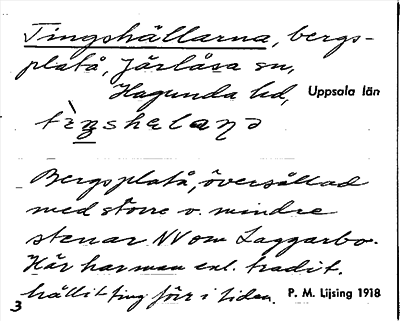 Tingshällarna, bergs-
platå, Järlåsa sn,
Hagunda hd, Uppsala län
Bergsplatå, översållad
med större o. mindre
stenar NV om Laggarbo.
Här har man enl. tradit.
hållit ting förr i tiden. P. M. Lijsing 1918
3